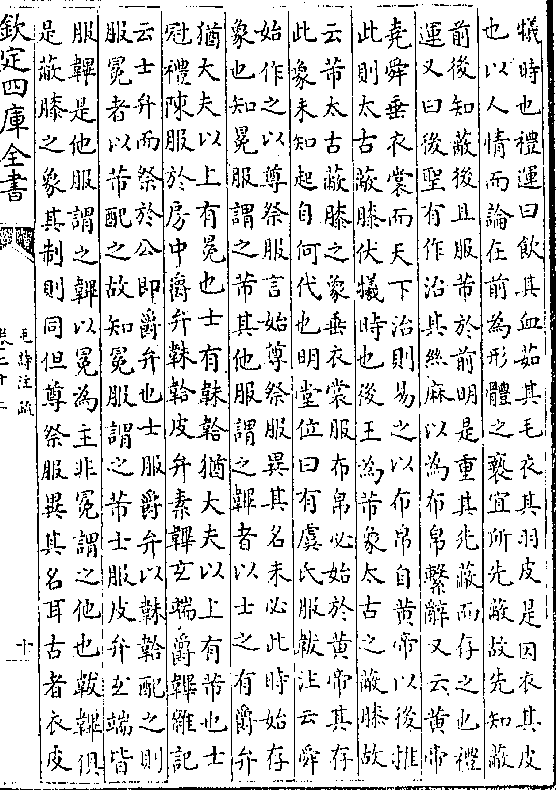 犧時也禮運曰飲其血茹其毛衣其羽皮是因衣其皮
也以人情而論在前為形體之褻宜所先蔽故先知蔽
前後知蔽後且服芾於前明是重其先蔽而存之也禮
運又曰後聖有作治其絲麻以為布帛繫辭又云黄帝
堯舜垂衣裳而天下治則易之以布帛自黄帝以後推
此則太古蔽膝伏犧時也後王為芾象太古之蔽膝故
云芾太古蔽膝之象垂衣裳服布帛必始於黄帝其存
此象未知起自何代也明堂位曰有虞氏服韍注云舜
始作之以尊祭服言始尊祭服異其名未必此時始存
象也知冕服謂之芾其他服謂之韠者以士之有爵弁
猶大夫以上有冕也士有韎韐猶大夫以上有芾也士
冠禮陳服於房中爵弁韎韐皮弁素韠玄端爵韠雜記
云士弁而祭於公即爵弁也士服爵弁以韎韐配之則
服冕者以芾配之故知冕服謂之芾士服皮弁玄端皆
服韠是他服謂之韠以冕為主非冕謂之他也韍韠俱
是蔽膝之象其制則同但尊祭服異其名耳古者衣皮
欽定四庫全書
毛詩注疏
十